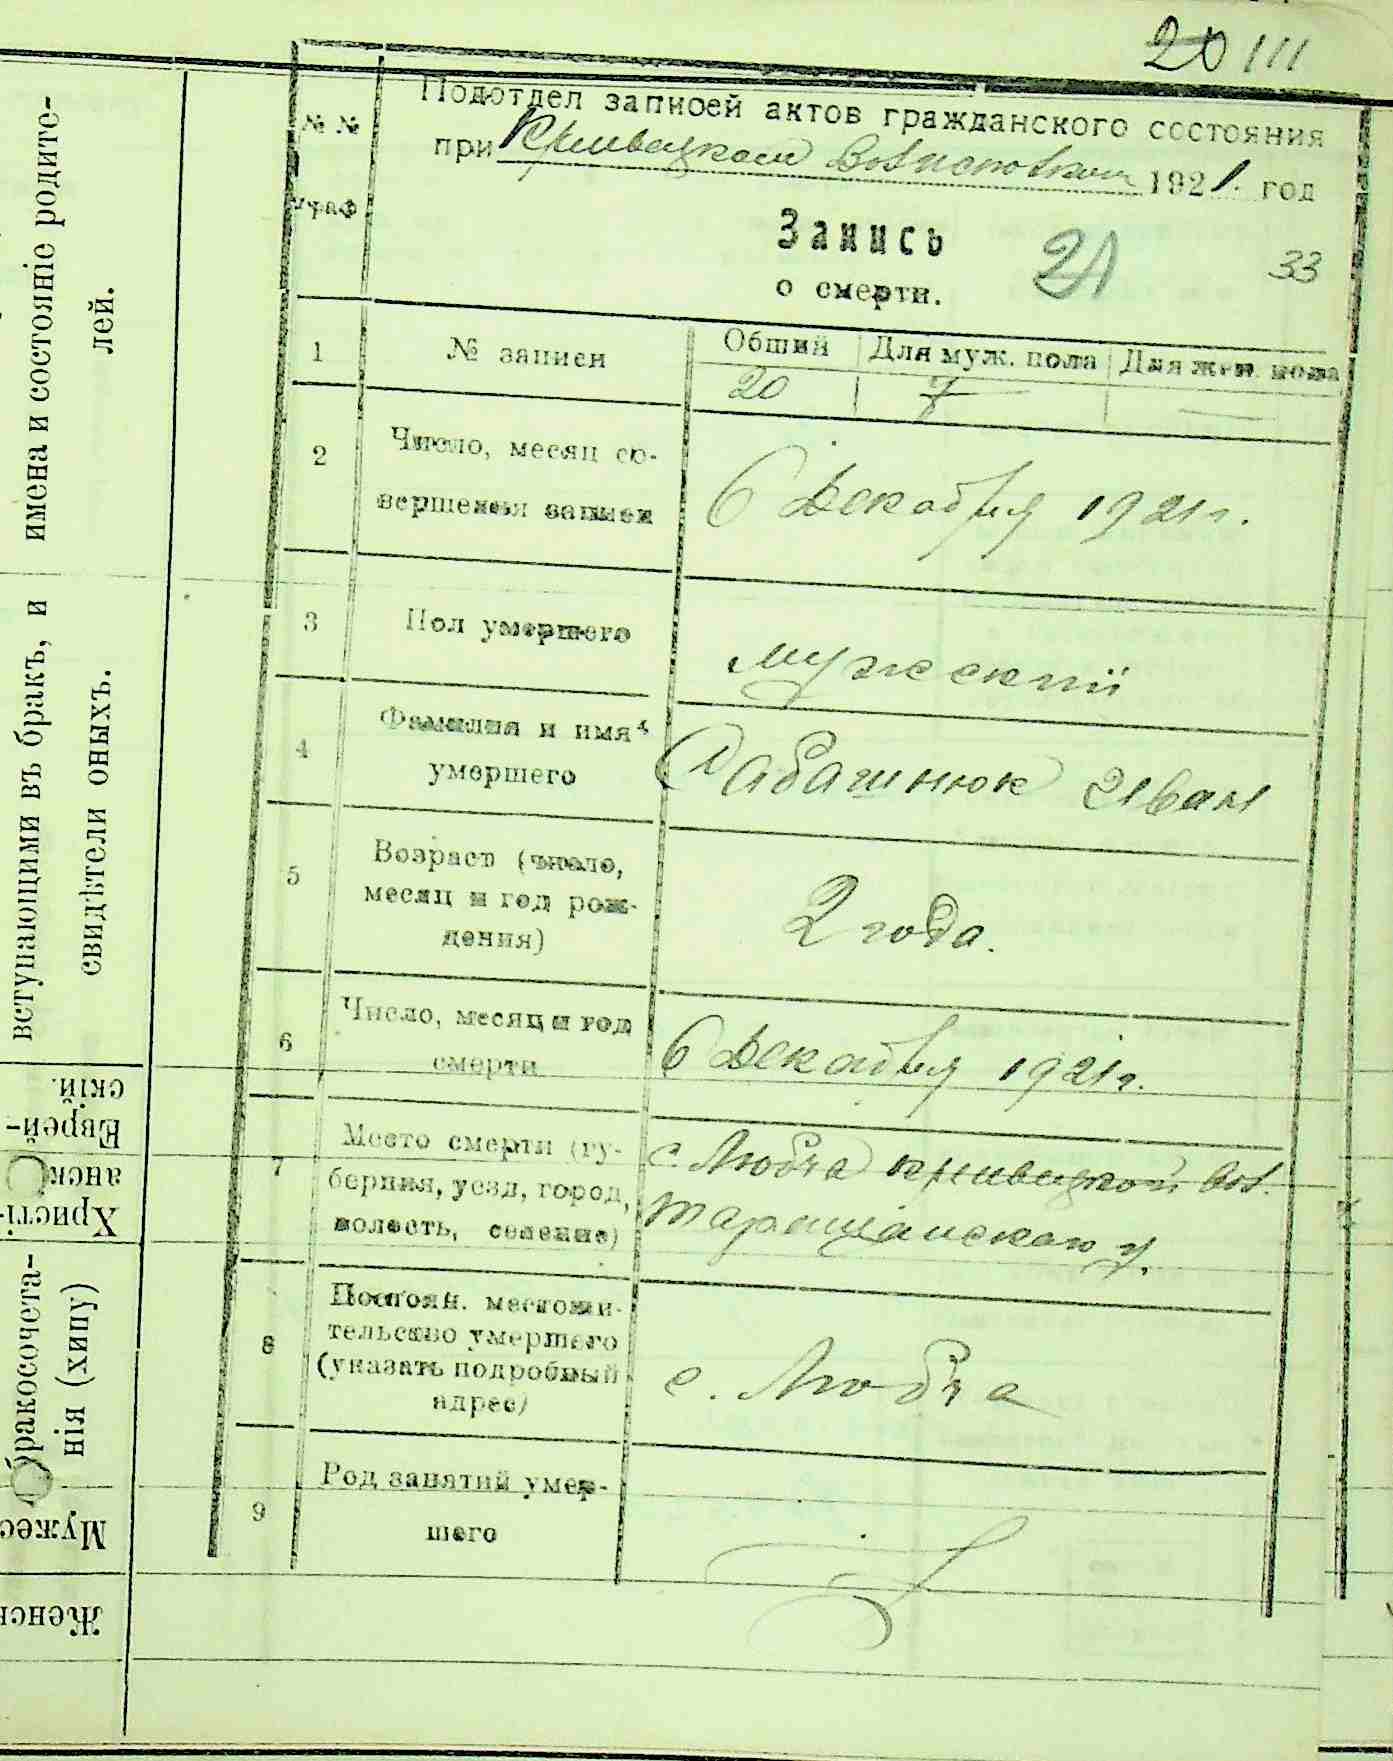 20 111
Подотдел записей актов гражданского состояния
при Кривецком Волисполкоме 1921. год
№ №
граф
Запись
о смерти.
21
33
1 № записи Общий Для муж. пола Для жен. пола
20 7 —
2 Число, месяц со-
вершения записи
6 Декабря 1921 г.
3 Пол умершего
мужский
4 Фамилия и имя
умершего
Иван
5 Возраст (число,
месяц и год рож-
дения)
2 года.
6 Число, месяц и год
смерти
6 Декабря 1921 г.
7 Место смерти (гу-
берния, уезд, город,
волость, селение)
с. Любча Кривецкой вол.
Таращанского у.
8 Постоян. местожи-
тельство умершего
(указать подробный
адрес)
с. Любча
9 Род занятий умер-
шего
имена и состояніе родите-
лей.
вступающими въ бракъ, и
свидѣтели оныхъ.
Еврей-
скій.
Христі-
анск
бракосочета-
нія (хипу)
Мужес
Женск